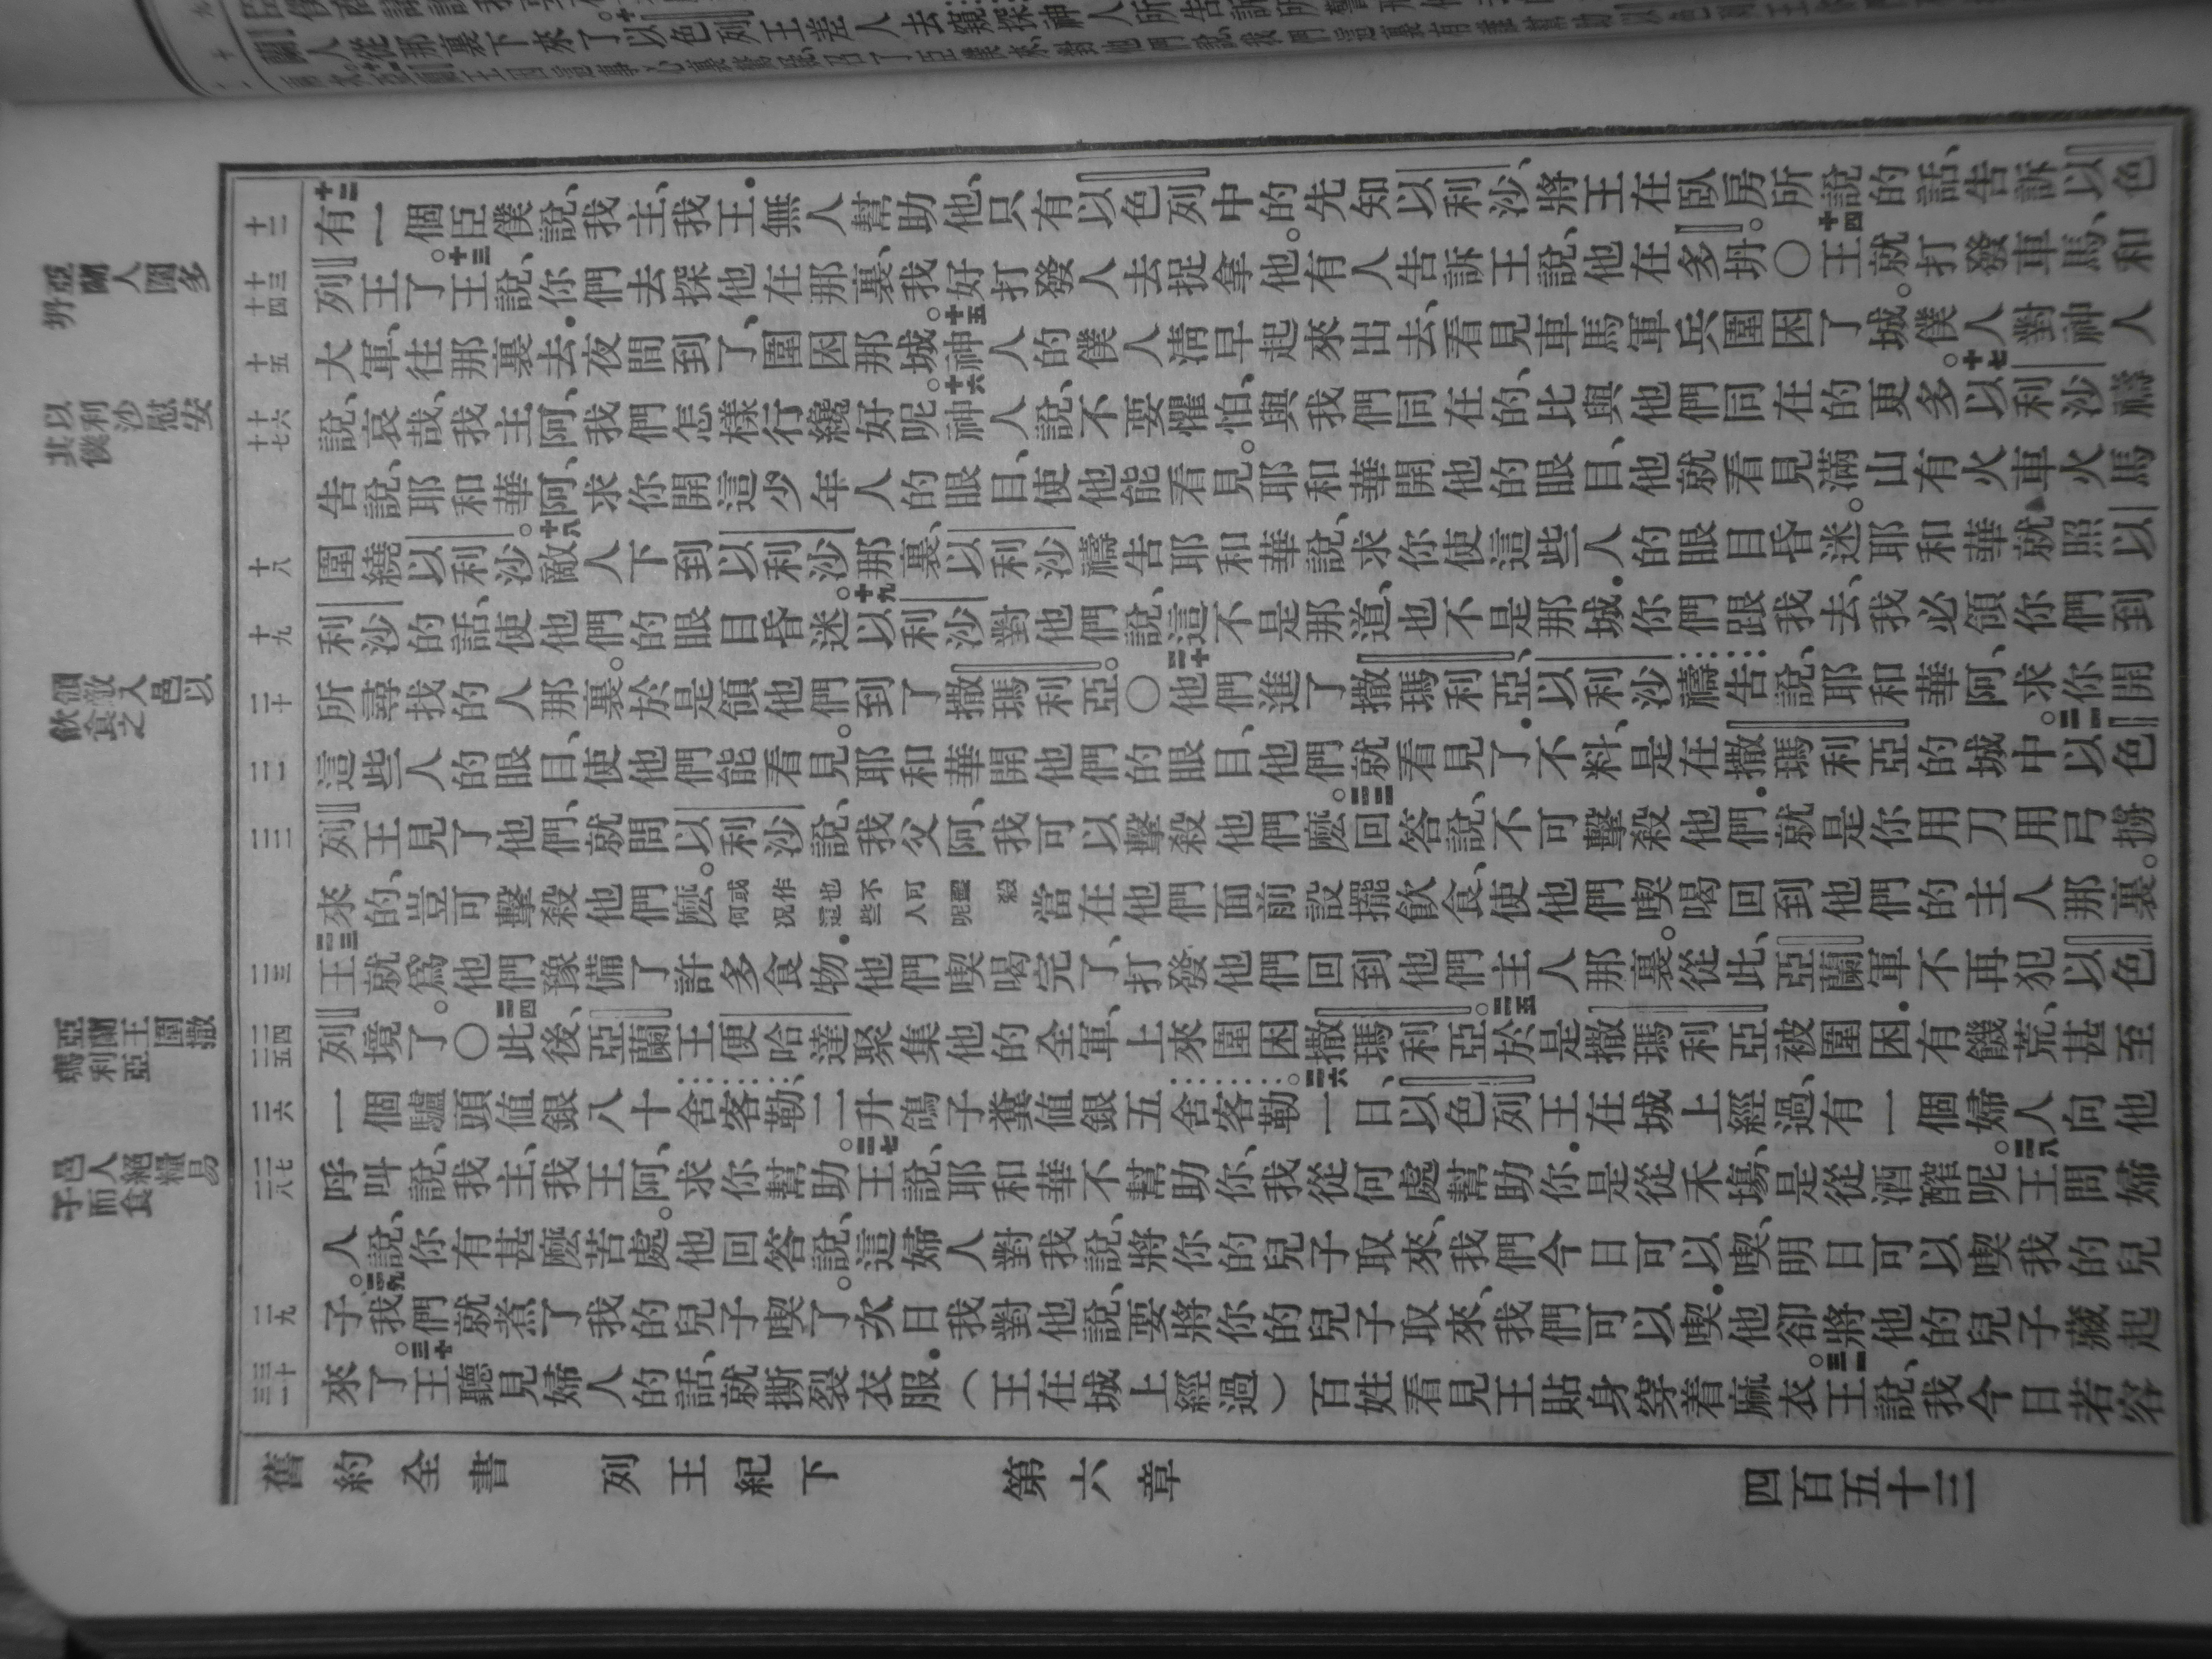 亞蘭人圍多
坍
以利沙慰安
其僕
領敵入邑以
飲食之
亞蘭王圍撒
瑪利亞
邑人絕糧易
子而食
十二
十三
十四
十五
十六
十七
十八
十九
二十
二一
二二
二三
二四
二五
二六
二七
二八
二九
三十
三一
十二有一個臣僕說、我主、我王、無人幫助他、只有以色列中的先知以利沙、將王在臥房所說的話、告訴以色
列王了。十三王說、你們去探他在那裏、我好打發人去捉拿他。有人告訴王說、他在多坍。○十四王就打發車馬、和
大軍、往那裏去、夜間到了、圍困那城。十五神人的僕人清早起來出去、看見車馬軍兵圍困了城。僕人對神人
說、哀哉、我主阿、我們怎樣行纔好呢。十六神人說、不要懼怕、與我們同在的、比與他們同在的更多。十七以利沙禱
告說、耶和華阿、求你開這少年人的眼目、使他能看見。耶和華開他的眼目、他就看見滿山有火車火馬
圍繞以利沙。十八敵人下到以利沙那裏、以利沙禱告耶和華說、求你使這些人的眼目昏迷。耶和華就照以
利沙的話、使他們的眼目昏迷。十九以利沙對他們說、這不是那道、也不是那城、你們跟我去、我必領你們到
所尋找的人那裏。於是領他們到了撒瑪利亞。○二十他們進了撒瑪利亞、以利沙禱告說、耶和華阿、求你開
這些人的眼目、使他們能看見。耶和華開他們的眼目、他們就看見了、不料、是在撒瑪利亞的城中。二一以色
列王見了他們、就問以利沙說、我父阿、我可以擊殺他們麽。二二回答說、不可擊殺他們、就是你用刀用弓擄
來的、豈可擊殺他們麽。或作何況也這不些可人盡呢殺當在他們面前設擺飲食、使他們喫喝回到他們的主人那裏。
二三王就爲他們豫備了許多食物、他們喫喝完了、打發他們回到他們主人那裏。從此、亞蘭軍不再犯以色
列境了。○二四此後、亞蘭王便哈達聚集他的全軍、上來圍困撒瑪利亞。二五於是撒瑪利亞被圍困、有饑荒、甚至
一個驢頭値銀八十舍客勒、二升鴿子糞値銀五舍客勒。二六一日、以色列王在城上經過、有一個婦人向他
呼叫說、我主、我王阿、求你幫助。二七王說、耶和華不幫助你、我從何處幫助你、是從禾場、是從酒醡呢。二八王問婦
人說、你有甚麽苦處。他回答說、這婦人對我說、將你的兒子取來、我們今日可以喫、明日可以喫我的兒
子。二九我們就煮了我的兒子喫了。次日我對他說、要將你的兒子取來、我們可以喫、他卻將他的兒子藏起
來了。三十王聽見婦人的話、就撕裂衣服、(王在城上經過)百姓看見王貼身穿着麻衣。三一王說、我今日若容
舊約全書 列王紀下 第六章 四百五十三